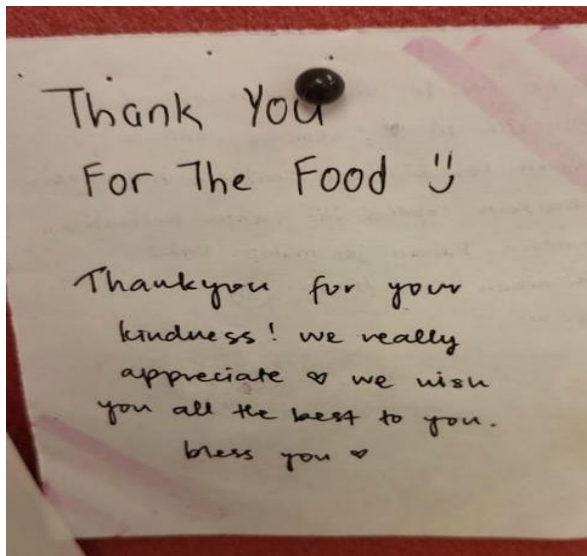 Thank You
For The Food
Thankyou for your
kindness! we really
appreciate ♡ we wish
you all the best to you.
bless you ♡